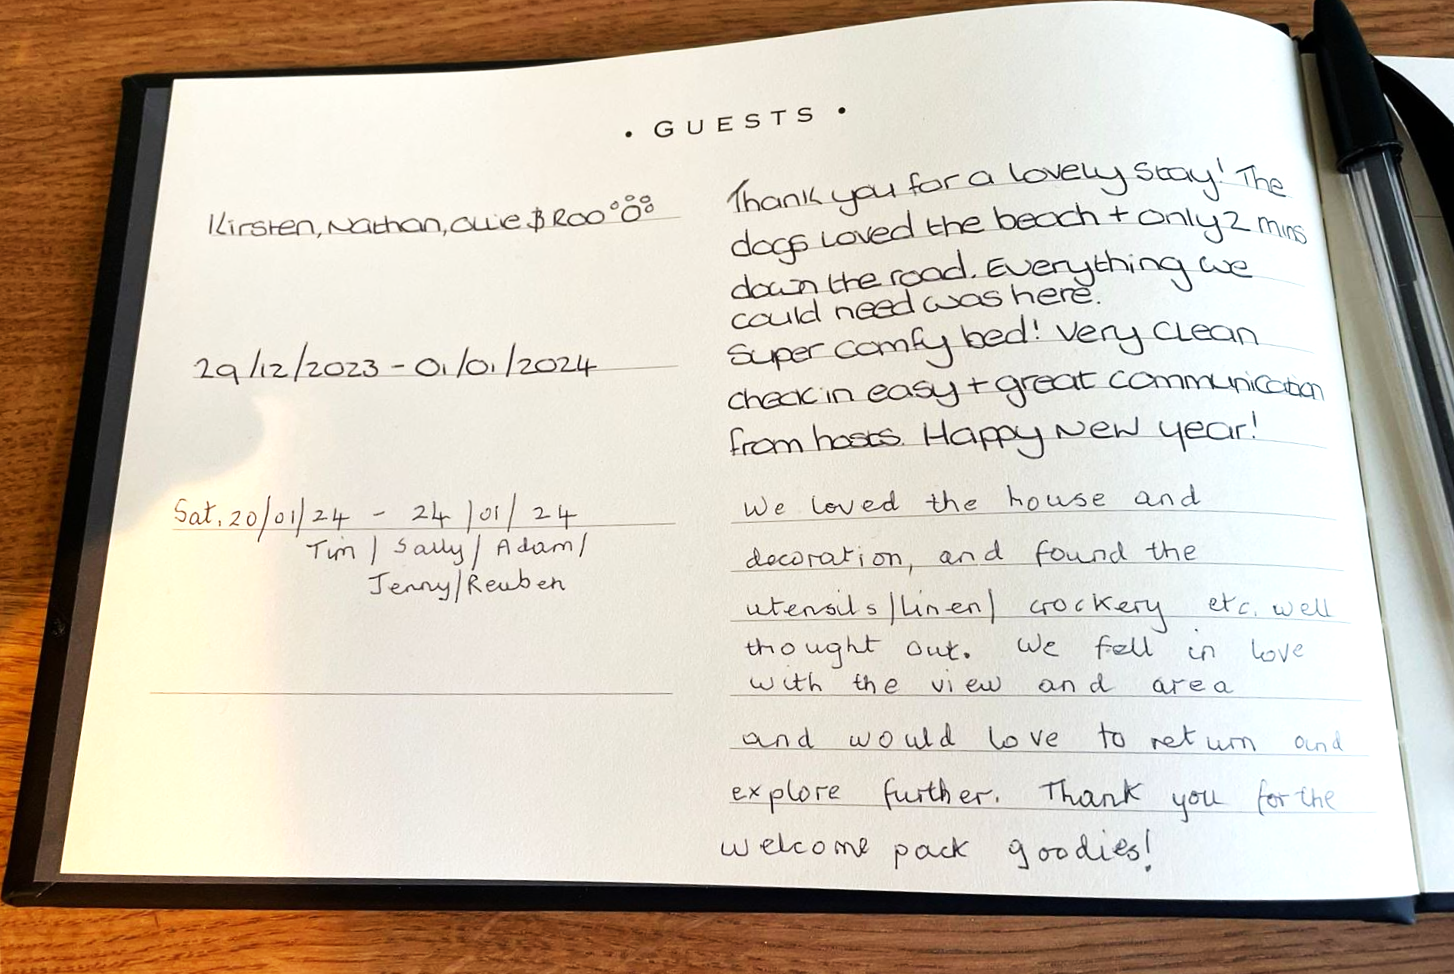 • GUESTS •
Kirsten, Nathan, Ollie & Roo
29/12/2023 - 01/01/2024
Thank you for a lovely stay! The
dogs loved the beach + only 2 mins
down the road. Everything we
could need was here.
Super comfy bed! Very clean
check in easy + great communication
from hosts. Happy New year!
Sat, 20/01/24 - 24/01/24
Tim / Sally / Adam /
Jenny/Reuben
We loved the house and
decoration, and found the
utensils/linen/ crockery etc. well
thought out. We fell in love
with the view and area
and would love to return and
explore further. Thank you for the
welcome pack goodies!